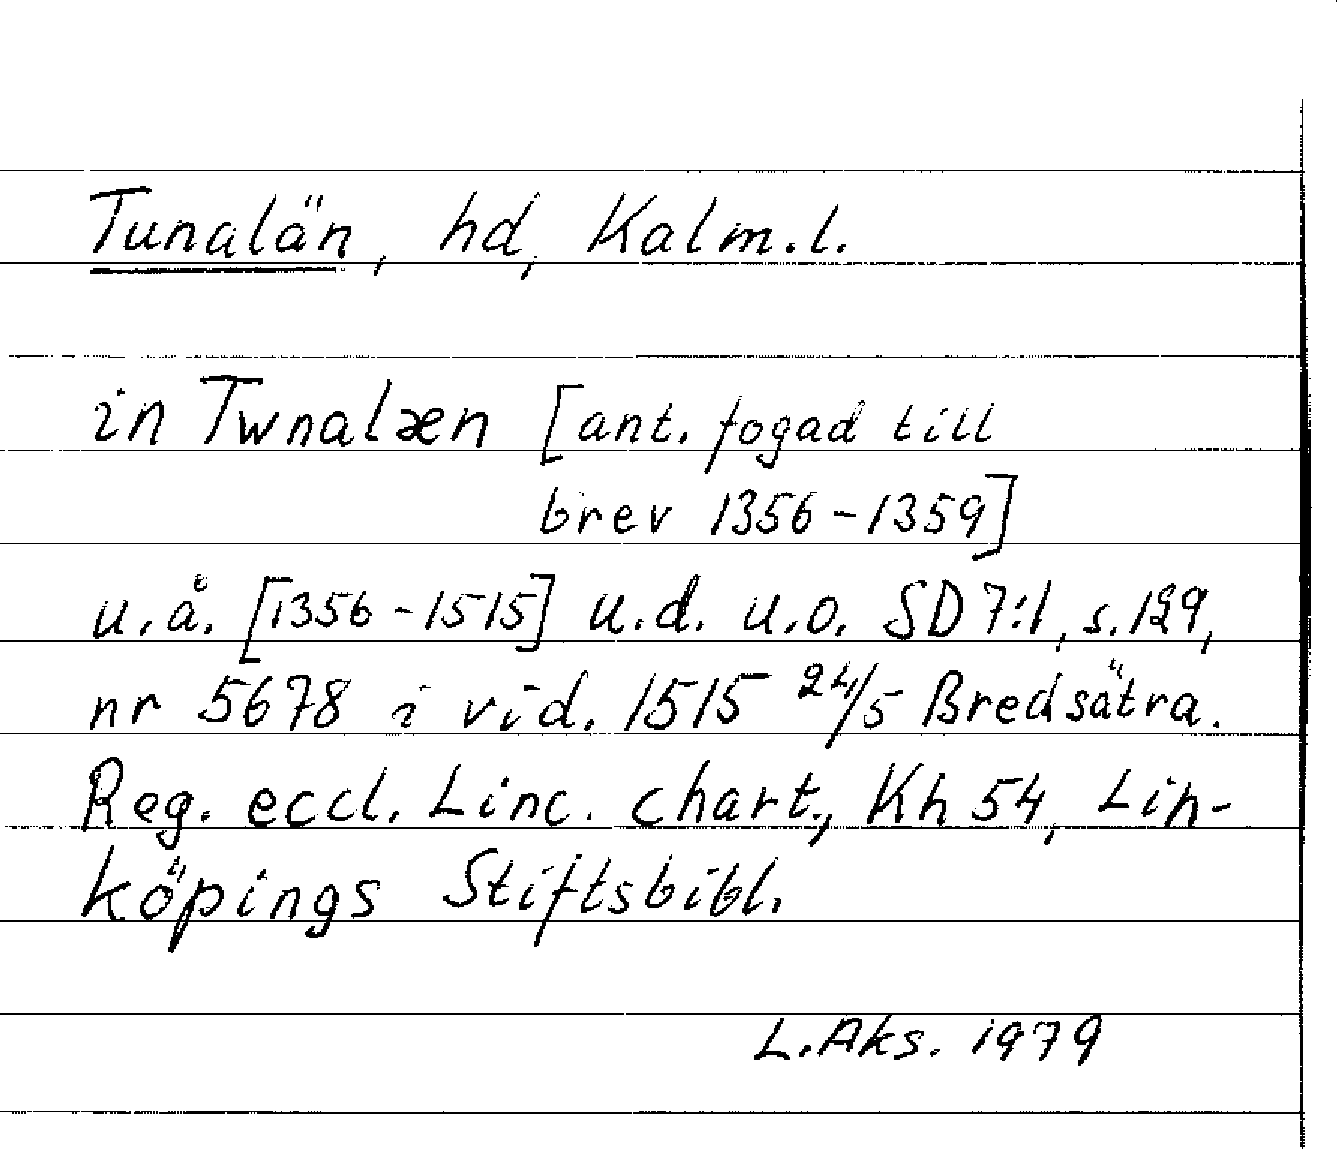 Tunalän, hd, Kalm.l.
in Twnalæn [ant. fogad till
brev 1356-1359]
u.å. [1356-1515] u.d. u.o. SD 7:1, s. 129,
nr 5678 i vid. 1515 24/5 Bredsätra.
Reg. eccl. Linc. chart., Kh 54, Lin-
köpings Stiftsbibl.
L.Aks. 1979